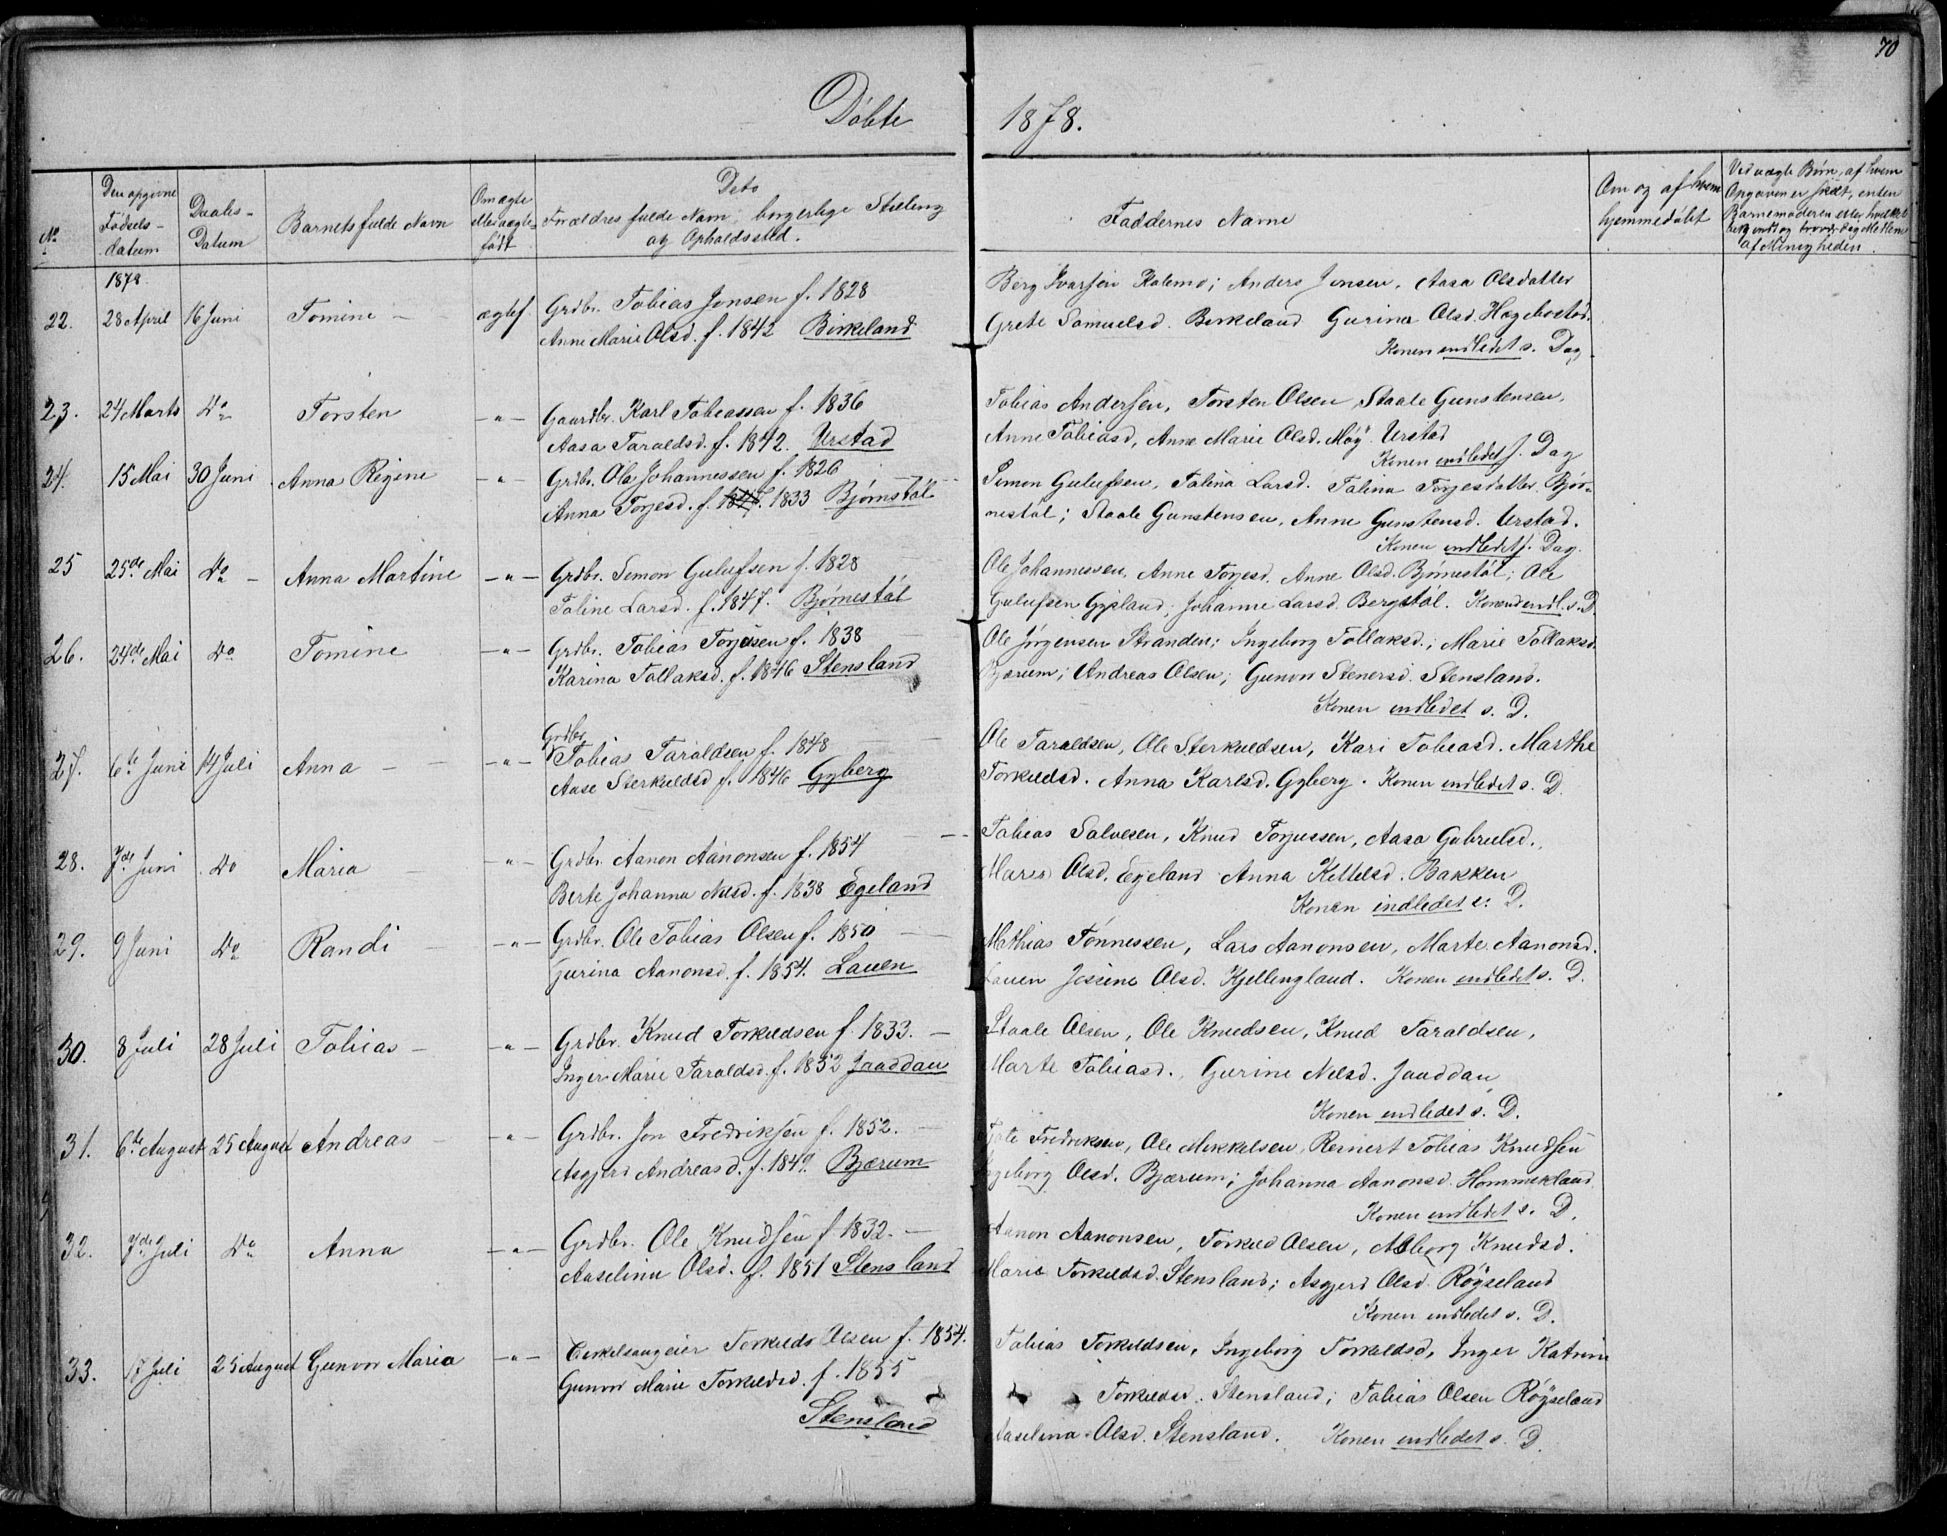 70
Døbte 1878.
No
Den opgivne Fødsels-datum
Daabs-Datum
Barnets fulde Navn
Om ægte eller uægte født
Deto
Forældres fulde Navn, borgerlige Stilling
og Opholdssted.
Faddernes Navne
Om og af hvem
hjemmedøbt
Ved uægte Børn, af hvem
Opgaven er skedt, enten
Barnemoderen eller hvilket
bekjendt og troværdig Medlem
af Menigheden
1878
22. 28 April 16 Juni Tomine — ægtef. Grdbr. Tobias Jonsen f. 1828
Anne Marie Olsd. f. 1842 Birkeland
Berg Ivarsen Kalemo; Anders Jensen, Aasa Olsdatter
Grete Samuelsd. Birkeland Gurina Olsd. Hægebostød.
Konen indledet s. Dag
23. 24 Marts Do Torsten -"- Gaardbr. Karl Tobiassen f. 1836
Aasa Taraldsd. f. 1842. Urstad
Tobias Andersen, Torsten Olsen, Staale Gunstensen,
Anne Tobiasd, Anne Marie Olsd. Møg. Urstad
Konen indledet s. Dag
24. 15 Mai 30 Juni Anna Regine -"- Grdbr. Ola Johannessen f. 1826
Anna Torjesd. f. 1833 Bjørnstøl
Simon Gulufsen, Talina Larsd. Talina Torjesdatter Bjør-
nestøl; Staale Gunstensen, Anne Gunstensd. Urstad.
Konen indledet s. Dag.
25 25de Mai Do — Anna Martine -"- Grdbr. Simon Gulufsen f. 1828
Taline Larsd. f. 1847. Bjørnestøl
Ole Johannessen, Anne Torjesd. Anne Olsd. Bjørnestøl; Ole
Gulufsen Gyseland; Johanne Larsd. Bergstøl. Konen indl. s. D
26. 24de Mai Do Tomine -"- Grdbr. Tobias Torjesen f. 1838
Karina Tollaksd. f. 1846 Stensland
Ole Jørgensen Stranden; Ingeborg Tollaksd.; Marie Tollaksd.
Bjærum; Andreas Olsen; Gunvor Stenersd. Stensland.
Konen indledet s. D.
27. 6te Juni 14 Juli Anna — -"- Grdbr. Tobias Taraldsen f. 1848
Aase Sterkuldsd f. 1846 Gyberg
Ole Taraldsen, Ole Sterkuldsen, Kari Tobiasd. Marthe
Torkildsd. Anna Karlsd. Gyberg. Konen indledet s. D.
28. 7de Juni Do Maria -"- Grdbr. Aanon Aanonsen f. 1854
Berte Johanna Nilsd. f. 1838 Egeland
Tobias Salvesen, Knud Torjussen, Aasa Gabrielsd.,
Maren Olsd. Egeland Anna Kittelsd. Bakken
Konen indledet s. D.
29. 9 Juni Do Randi -"- Grdbr. Ole Tobias Olsen f. 1850
Gurina Aanonsd. f. 1854. Lauen
Mathias Tønnessen, Lars Aanonsen, Marte Aanonsd.
Lauen Josine Olsd. Kjellengland. Konen indledet s. D.
30. 8 Juli 28 Juli Tobias — -"- Grdbr. Knud Torkildsen f. 1833. —
Inger Marie Taraldsd. f. 1852 Jaaddan
Staale Olsen, Ole Knudsen, Knud Taraldsen,
Marte Tobiasd., Gurine Nilsd. Jaaddan
Konen indledet s. D.
31. 6te August 25 August Andreas -"- Grdbr. Jon Fredriksen f. 1852.
Asgjerd Andreasd. f. 1849 Bjærum
Fredriksen, Ole Mikkelsen, Reinert Tobias Knudsen
Ingeborg Olsd. Bjærum; Johanna Aanonsd. Hommekland
Konen indledet s. D.
32. 7de Juli Do Anna -"- Grdbr. Ole Knudsen f 1832. —
Aaselina Olsd. f. 1851 Stensland
Aanon Aanonsen, Torkild Olsen, Aalborg Knudsd.
Marie Torkildsd. Stensland; Asgjerd Olsd. Røyseland
Konen indledet s. D.
33. 17 Juli 25 August Gunvor Maria -"- Cirkelsaugeier Torkild Olsen f. 1854.
Gunvor Marie Torkildsd. f. 1855
Stensland
Tobias Torkildsen, Ingeborg Torkildsd, Inger Katrine
Torkildsd. Stensland; Tobias Olsen Røyseland
Aaselina Olsd. Stensland. Konen indledet s. D.